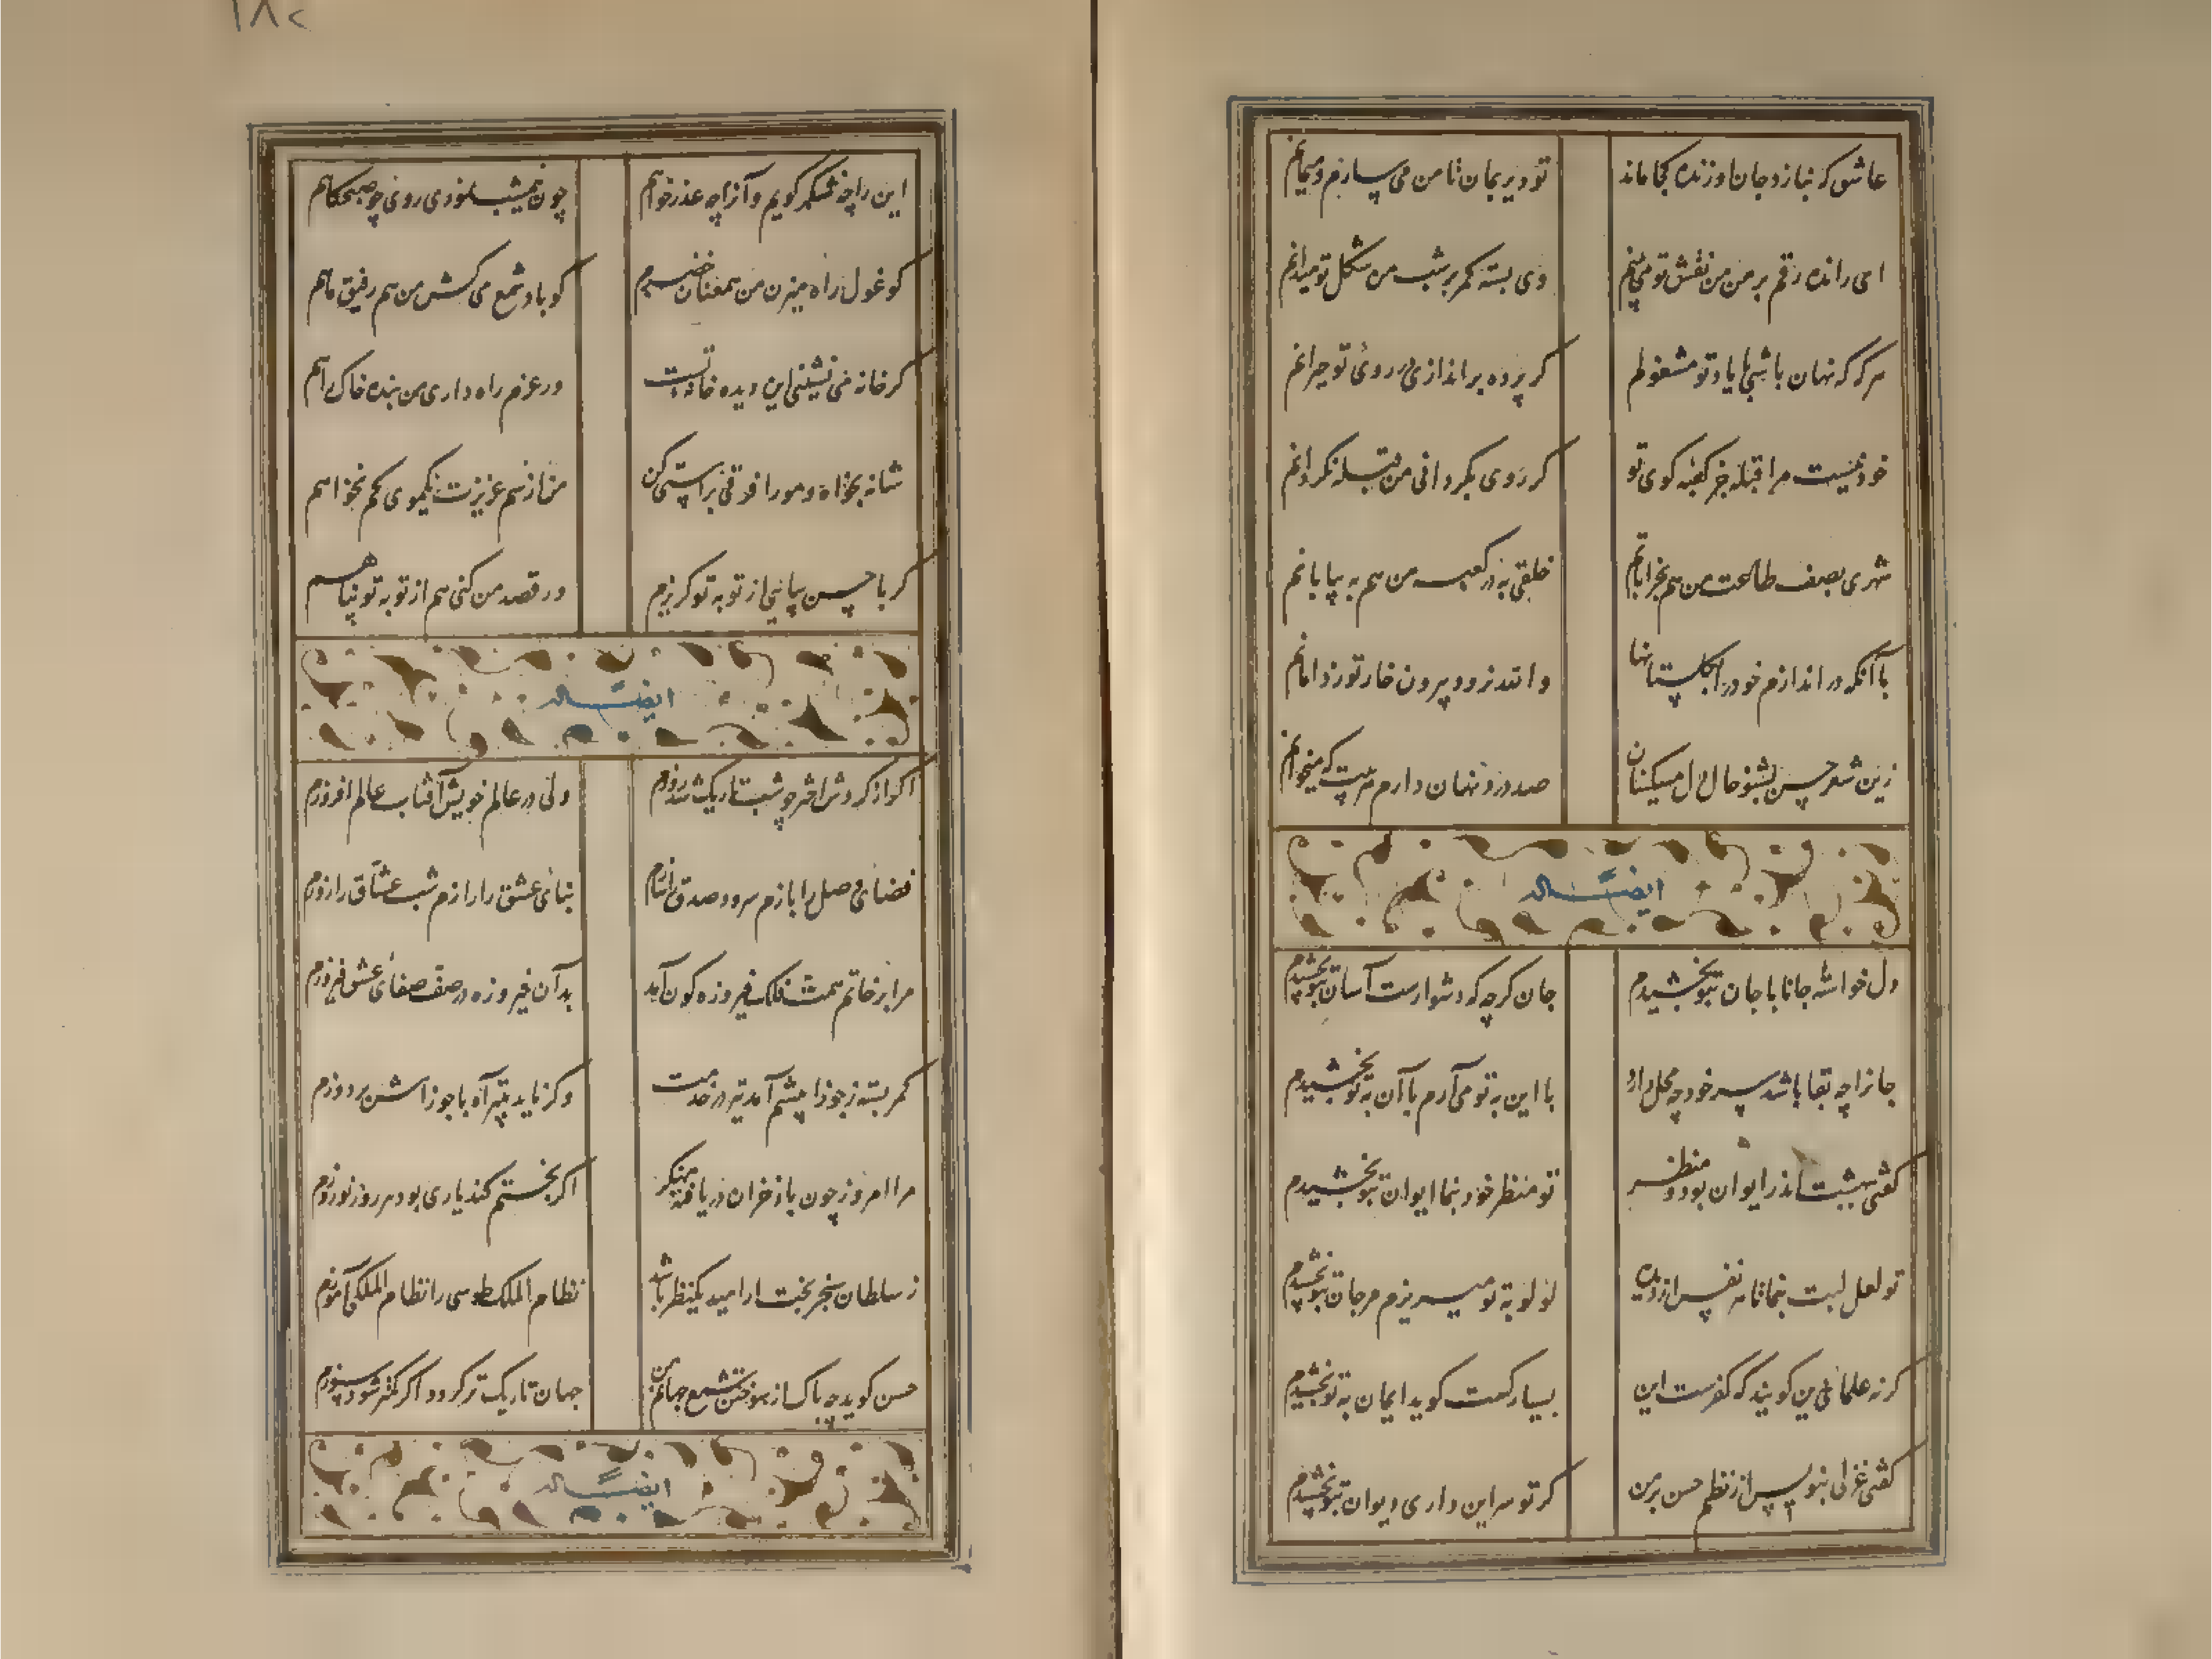 عاشق که نبازد جان او زنده کجا ماند تو دیر بمان تا من می سپارم و میمانم
ای رانده رقم بر من من نقش تو می بینم وی بسته کمر بر شب من شکل تو میدانم
هر که که نهان باشی با یاد تو مشغولم کر پرده براندازی در روی تو حیرانم
خود نیست مرا قبله جز کعبه کوی تو کر روی بکردانی من قبله نکردانم
شهری بصف طاعت من هم بخراباتم خلقی به در کعبه من هم به بیابانم
با آنکه در اندازم خود را بکلستانها والله نرود بیرون خار تو ز دامانم
زین شعر حسن بشنو حال دل مسکینان صد درد نهان دارم که میخوانم
ایضاً له
دل خواسته جانا با جان بتو بخشیدم جان کرچه که دشوارست آسان بتو بخشیدم
جانرا چه بقا باشد سر خود چه محل دارد با این به تو می آرم با آن به تو بخشیدم
کفتی بهشت اندر ایوان بود و منظر تو منظر خود بنما ایوان بتو بخشیدم
تو لعل لبت بنما تا من نفس از دیده لولو به تو میریزم مرجان بتو بخشیدم
کر نه علمای دین کویند که کفرست این بسیار کست کوید ایمان به تو بخشیدم
کفتی غزلی بنویس از نظم حسن بر من کر تو سر این داری دیوان بتو بخشیدم
۱۸۲
این را چه شکر کویم و آنرا چه عذر خواهم چون نیمشب نمودی روی چو صبحکاهم
کو غول راه میزن من همعنان خضرم کو باد شمع می کش من هم رفیق ماهم
کر خانه می نشینی این دیده خانه تست ور عزم راه داری من بنده خاک راهم
شانه بخواه و مو را فرقی براستی کن من از سر عزیزت یکموی کم نخواهم
کر با حسن بیایی از تو به تو کریزم ور قصد من کنی هم از تو به تو پناهم
ایضاً له
اکر از کردش اختر چو شب تاریک شد روزم ولی در عالم خویش آفتاب عالم افروزم
فضای وصل را بازم سرود صدق را سازم بنای عشق را رازم شب عشاق را روزم
مرا بر خاتم همت فلک فیروزه کون آمد بدان فیروزه در صف صفای عشق فیروزم
کمر بسته ز جوزا پیشم آمد تیر در خدمت وکر ناید بتیر آه با جوزاش بردوزم
مرا امروز چون باد خزان دریافته منکر اکر بختم کند یاری بود هر روز نوروزم
ز سلطان سنجر بخت ار امید یکنظر باشد نظام الملک طوسی را نظام الملکی آموزم
حسن کوید چه باک از سوختن شمع جهانم من جهان تاریک تر کردد اکر کمتر شود سوزم
ایضاً له